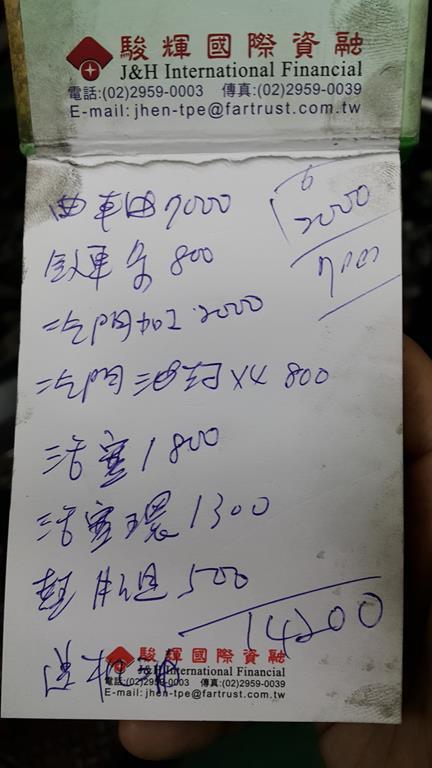 駿輝國際資融
J&H International Financial
電話:(02)2959-0003 傳真:(02)2959-0039
E-mail: jhen-tpe@fartrust.com.tw
曲軸 7000
2000
800
汽門加工 2000
汽門油封 X4 800
活塞 1800
活塞環 1300
墊片組 500
14200
駿輝國際資融
J&H International Financial
電話:(02)2959-0003 傳真:(02)2959-0039
E-mail: jhen-tpe@fartrust.com.tw